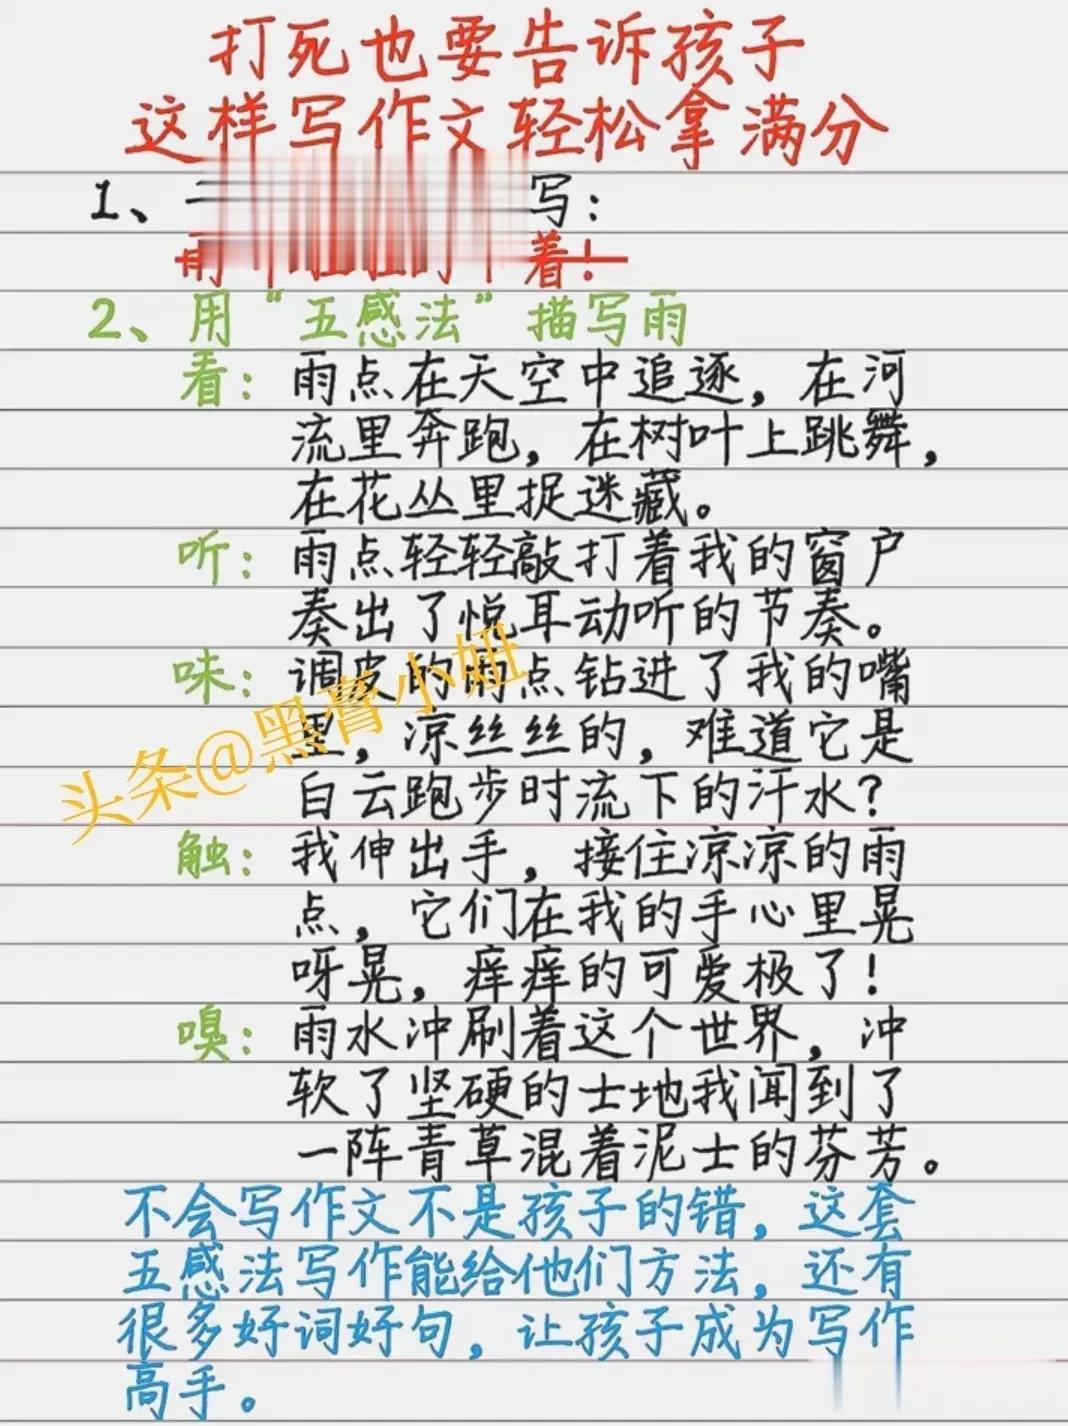 打死也要告诉孩子
这样写作文轻松拿满分
1、写：
着！
2、用“五感法”描写雨
看：雨点在天空中追逐，在河
流里奔跑，在树叶上跳舞，
在花丛里捉迷藏。
听：雨点轻轻敲打着我的窗户
奏出了悦耳动听的节奏。
味：调皮的雨点钻进了我的嘴
里，凉丝丝的，难道它是
白云跑步时流下的汗水？
触：我伸出手，接住凉凉的雨
点，它们在我的手心里晃
呀晃，痒痒的可爱极了！
嗅：雨水冲刷着这个世界，冲
软了坚硬的土地我闻到了
一阵青草混着泥土的芬芳。
不会写作文不是孩子的错，这套
五感法写作能给他们方法，还有
很多好词好句，让孩子成为写作
高手。
头条@黑膏小妞